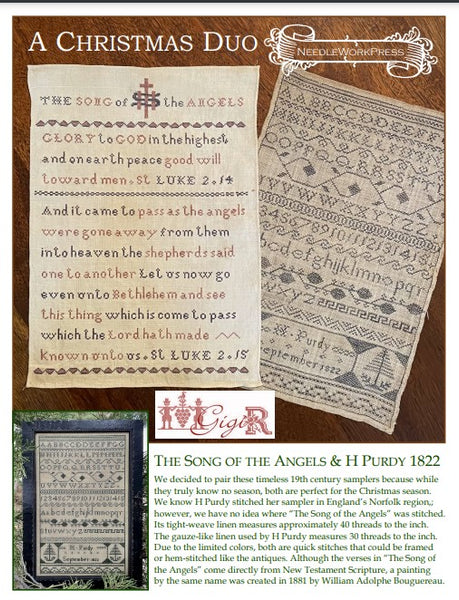 A CHRISTMAS DUO
NEEDLEWORKPRESS
THE SONG of the ANGELS
GLORY to GOD in the highest
and on earth peace good will
toward men. St LUKE 2.14
And it came to pass as the angels
were gone away from them
into heaven the shepherds said
one to another Let us now go
even unto Bethlehem and see
this thing which is come to pass
which the Lord hath made
known unto us. St LUKE 2.15
H. Purdy
September 1822
GigiR
H Purdy
September 1822
THE SONG OF THE ANGELS & H PURDY 1822
We decided to pair these timeless 19th century samplers because while
they truly know no season, both are perfect for the Christmas season.
We know H Purdy stitched her sampler in England's Norfolk region,;
however, we have no idea where "The Song of the Angels" was stitched.
Its tight-weave linen measures approximately 40 threads to the inch.
The gauze-like linen used by H Purdy measures 30 threads to the inch.
Due to the limited colors, both are quick stitches that could be framed
or hem-stitched like the antiques. Although the verses in "The Song of
the Angels" come directly from New Testament Scripture, a painting
by the same name was created in 1881 by William Adolphe Bouguereau.